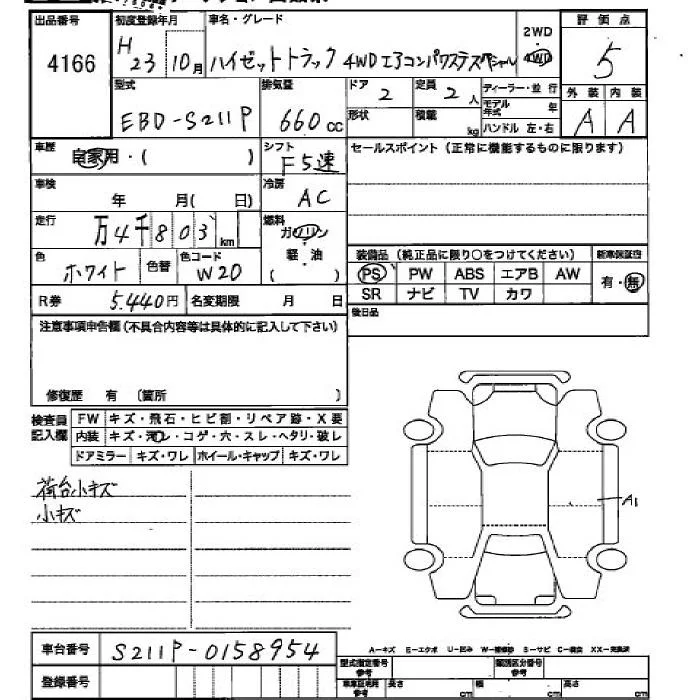 出品番号 4166
初度登録年月 H23 10月
車名・グレード ハイゼットトラック 4WDエアコンパワステスペシャル
2WD 4WD
評価点 5
外装 A 内装 A
型式 EBD-S211P
排気量 660cc
ドア 2
定員 2人
ディーラー・並行
モデル年式 年
形状
積載 kg
ハンドル 左・右
車歴 自家用・( )
シフト F5速
セールスポイント(正常に機能するものに限ります)
車検 年 月(日)
冷房 AC
走行 万4千803km
燃料 ガソリン 軽油 ( )
色 ホワイト 色替
色コード W20
装備品(純正品に限り○をつけてください)
新車保証書 有・無
PS PW ABS エアB AW
SR ナビ TV カワ
R券 5.440円
名変期限 月 日
後日品
注意事項申告欄(不具合内容等は具体的に記入して下さい)
修復歴 有 (箇所 )
検査員記入欄
FW キズ・飛石・ヒビ割・リペア跡・X要
内装 キズ・汚レ・コゲ・穴・スレ・ヘタリ・破レ
ドアミラー キズ・ワレ ホイール・キャップ キズ・ワレ
荷台小キズ
小キズ
A1
車台番号 S211P-0158954
登録番号
A-キズ E-エクボ U-凹み W-補修跡 S-サビ C-腐食 XX-交換済
型式指定番号参考
類別区分番号参考
長さ cm
幅 cm
高さ cm